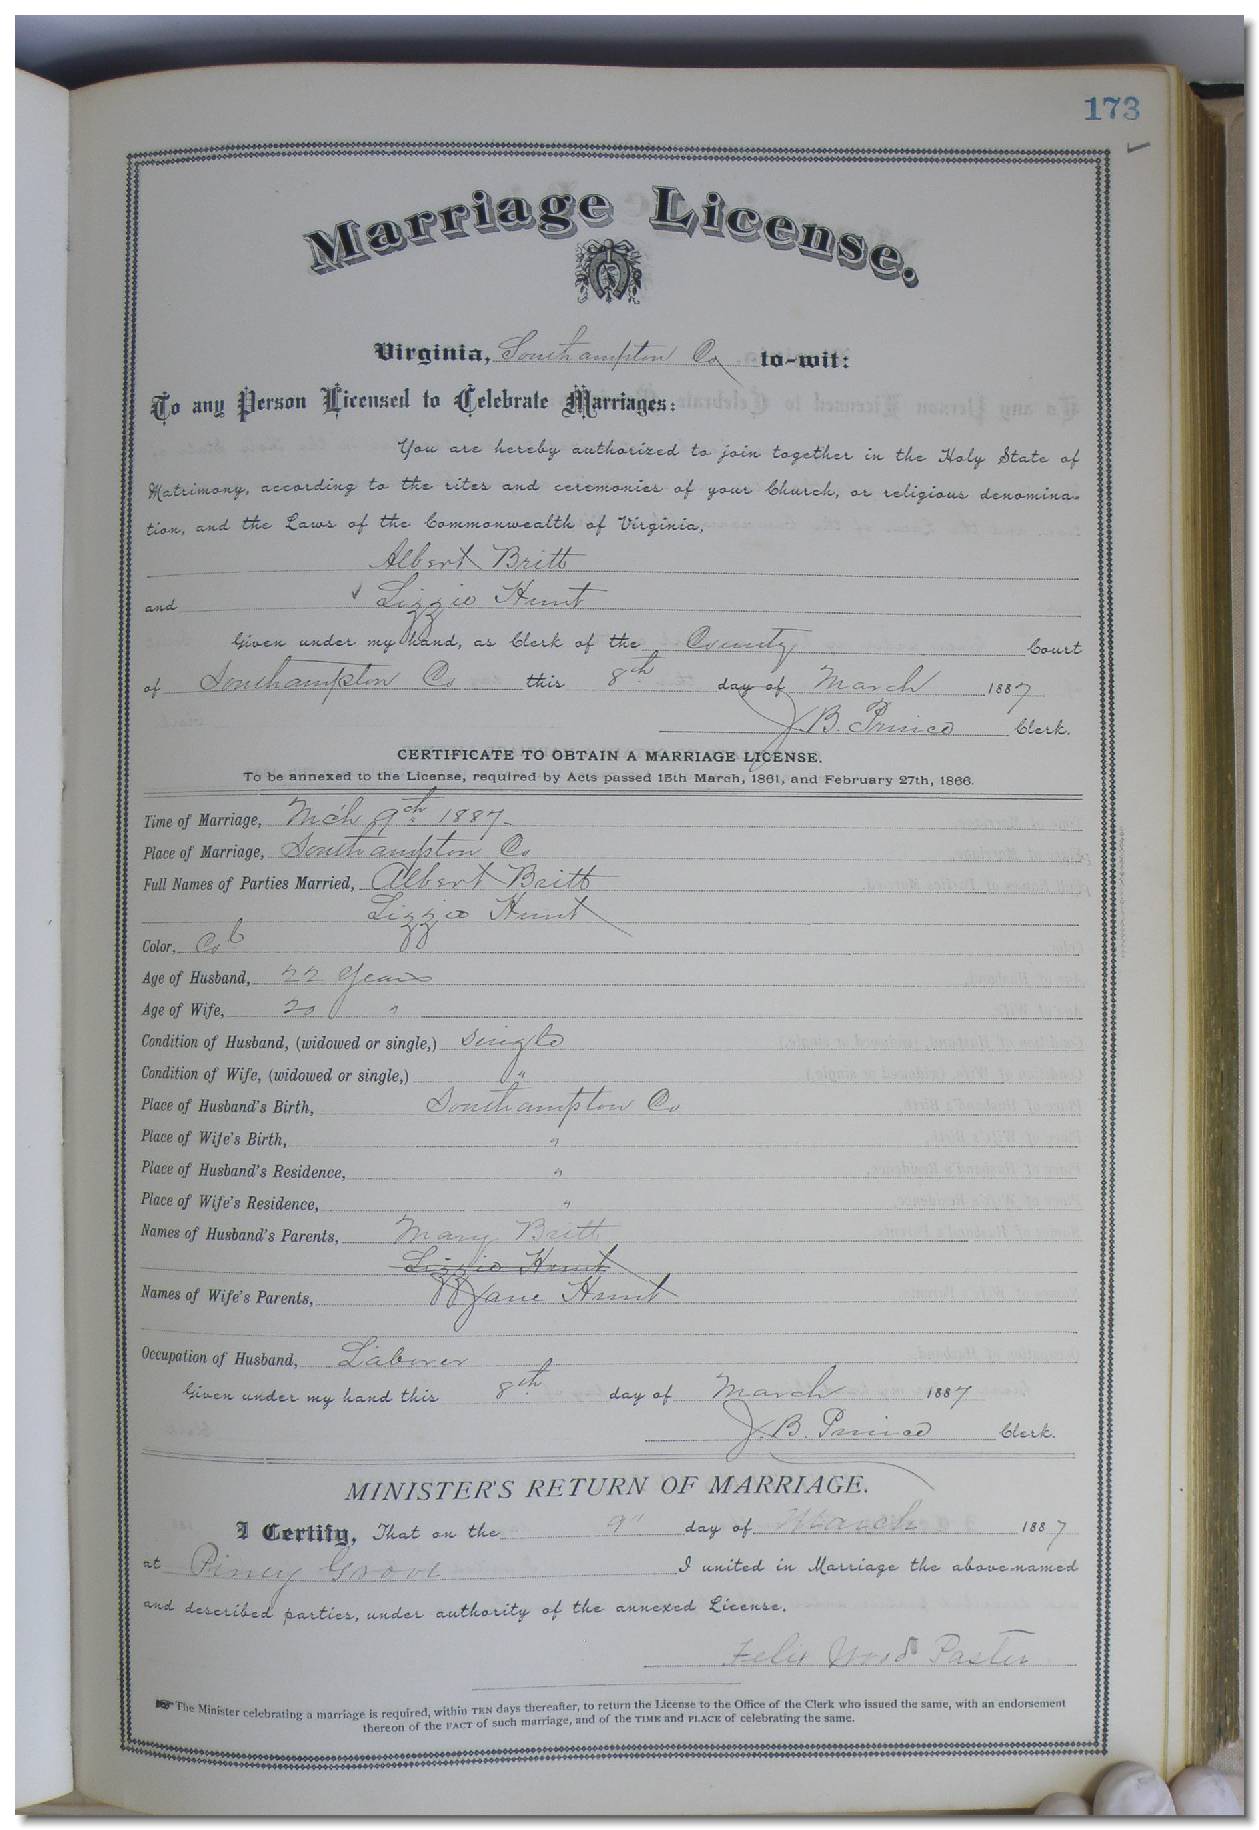 173
Marriage License.
Virginia, Southampton Co to-wit:
To any Person Licensed to Celebrate Marriages:
You are hereby authorized to join together in the Holy State of
Matrimony, according to the rites and ceremonies of your Church, or religious denomina-
tion, and the Laws of the Commonwealth of Virginia,
Albert Britt
and Lizzie Hunt
Given under my hand, as Clerk of the County Court
of Southampton Co this 8th day of March 1887
J. B. Prince Clerk.
CERTIFICATE TO OBTAIN A MARRIAGE LICENSE.
To be annexed to the License, required by Acts passed 15th March, 1861, and February 27th, 1866.
Time of Marriage, Mch 9th 1887
Place of Marriage, Southampton Co
Full Names of Parties Married, Albert Britt
Lizzie Hunt
Color, Col
Age of Husband, 22 years
Age of Wife, 20 "
Condition of Husband, (widowed or single,) single
Condition of Wife, (widowed or single,) "
Place of Husband's Birth, Southampton Co
Place of Wife's Birth, "
Place of Husband's Residence, "
Place of Wife's Residence, "
Names of Husband's Parents, Mary Britt
Lizzie Hunt
Names of Wife's Parents, Jane Hunt
Occupation of Husband, Laborer
Given under my hand this 8th day of March 1887
J. B. Prince Clerk.
MINISTER'S RETURN OF MARRIAGE.
I Certify, That on the 9" day of March 1887
at Piney Grove I united in Marriage the above-named
and described parties, under authority of the annexed License.
Felix Wood Paster
The Minister celebrating a marriage is required, within TEN days thereafter, to return the License to the Office of the Clerk who issued the same, with an endorsement
thereon of the FACT of such marriage, and of the TIME and PLACE of celebrating the same.